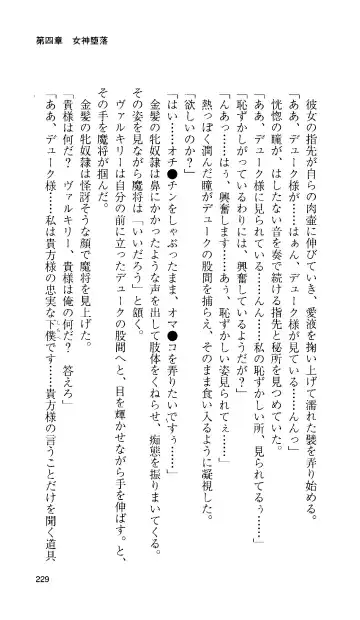 第四章　女神堕落
彼女の指先が自らの肉壷に伸びていき、愛液を掬い上げて濡れた襞を弄り始める。
「ああ、デューク様が……はぁん、デューク様が見ている……んんっ」
恍惚の瞳が、はしたない音を奏で続ける指先と秘所を見つめていた。
「ああ、デューク様に見られている……んん……私の恥ずかしい所、見られてるぅ……」
「恥ずかしがっているわりには、興奮しているようだが？」
「んあっ……はぅ、興奮します……あぅ、恥ずかしい姿見られてぇ……」
熱っぽく潤んだ瞳がデュークの股間を捕らえ、そのまま食い入るように凝視した。
「欲しいのか？」
「はい……オチ●チンをしゃぶったまま、オマ●コを弄りたいですぅ……」
金髪の牝奴隷は鼻にかかったような声を出して肢体をくねらせ、痴態を振りまいてくる。
その姿を見ながら魔将は「いいだろう」と頷く。
ヴァルキリーは自分の前に立ったデュークの股間へと、目を輝かせながら手を伸ばす。と、
その手を魔将が掴んだ。
金髪の牝奴隷は怪訝そうな顔で魔将を見上げた。
「貴様は何だ？　ヴァルキリー、貴様は俺の何だ？　答えろ」
「ああ、デューク様……私は貴方様の忠実な下僕です……貴方様の言うことだけを聞く道具
229